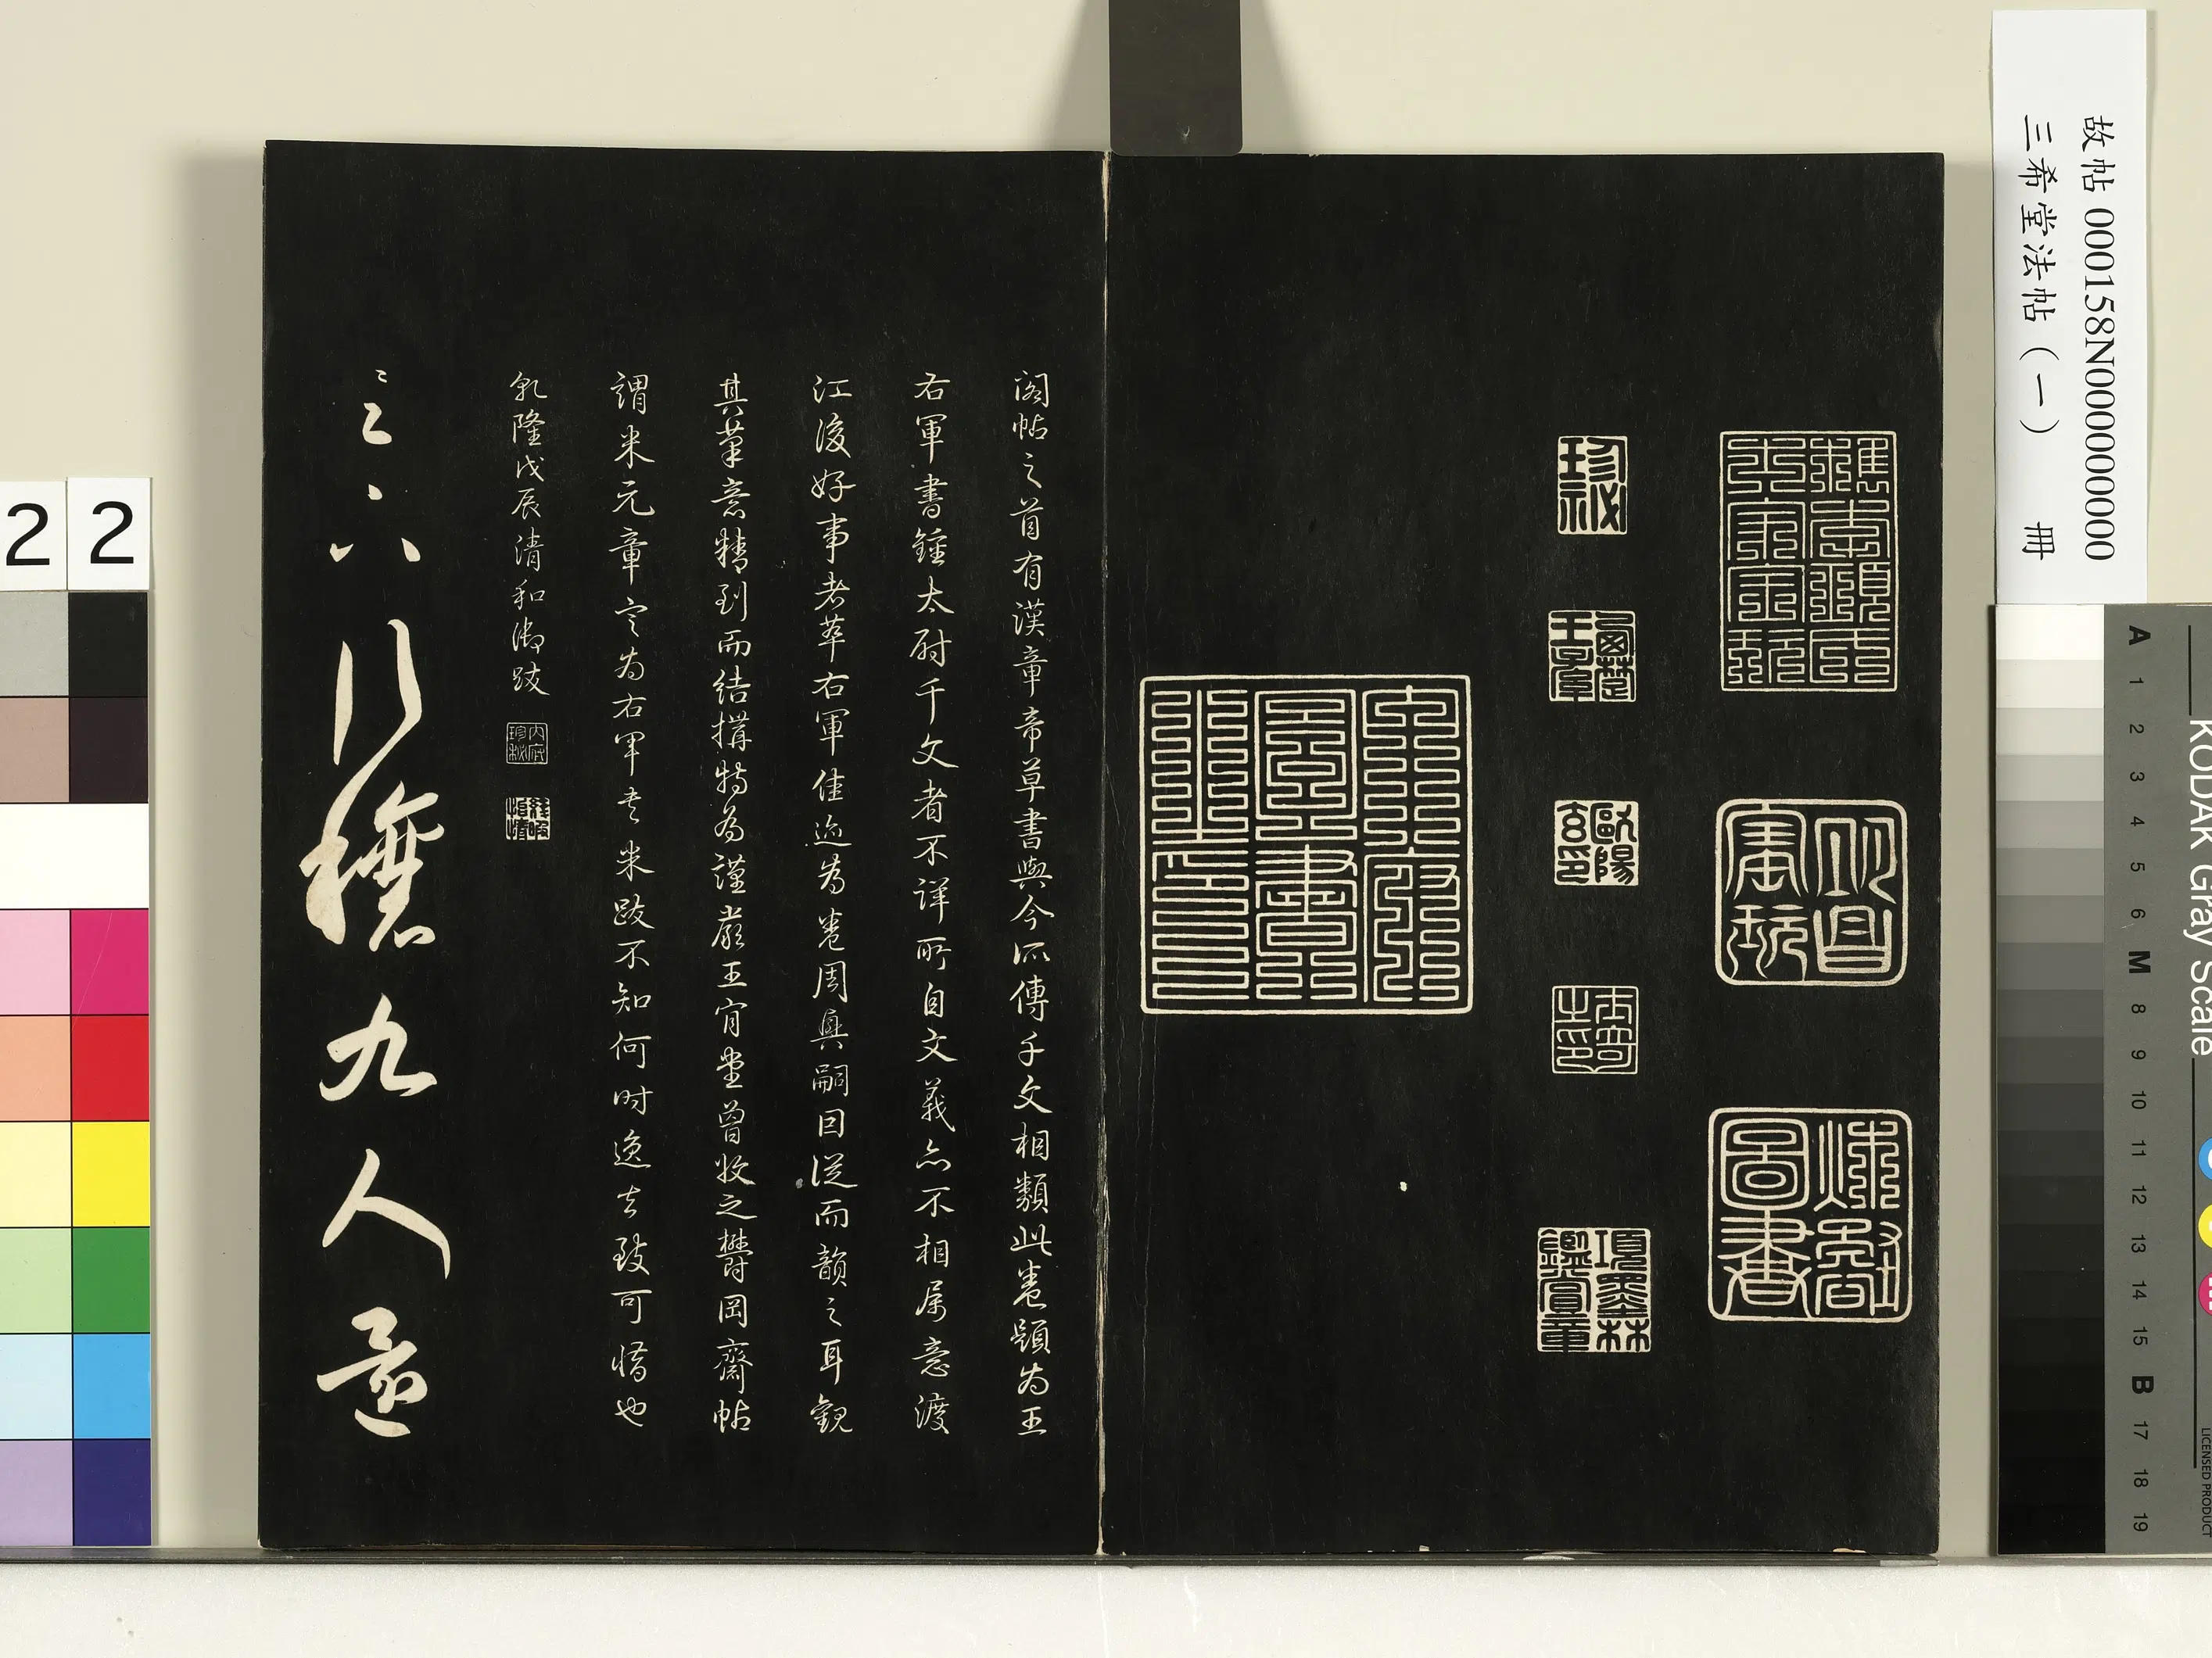 故帖 000158N000000000
三希堂法帖（一） 冊
珍祕
歐陽玄印
項墨林鑑賞章
明昌寶玩
閣帖之首有漢章帝草書與今所傳千文相類此卷題為王
右軍書鍾太尉千文者不詳所自文義亦不相属意渡
江後好事者萃右軍佳迹為卷周興嗣因從而韻之耳觀
其筆意精到而結搆特為謹嚴王肯堂曾收之欝岡齋帖
謂米元章定為右軍書米跋不知何時逸去致可惜也
乾隆戊辰清和御跋
内府珍祕
九人還
22
KODAK Gray Scale
A 1 2 3 4 5 6 M 8 9 10 11 12 13 14 15 B 17 18 19
LICENSED PRODUCT